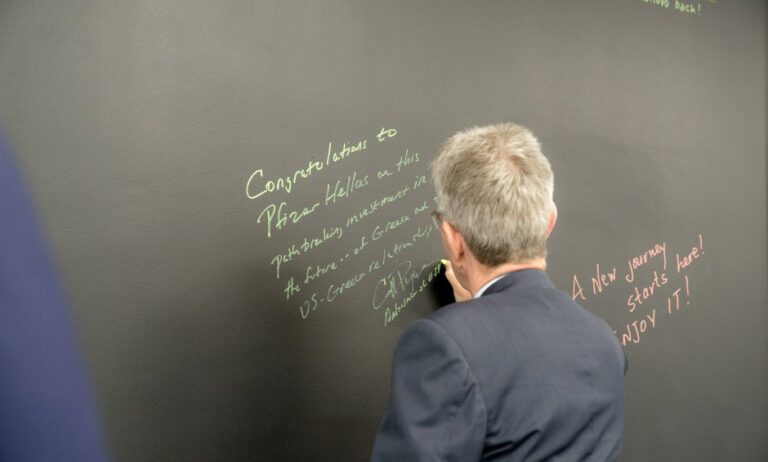 back!
Congratolations to
Pfizer Hellas on this
pathbreaking investment in
the future -- of Greece and
US-Greece relationship!
A New journey
starts here!
ENJOY IT!